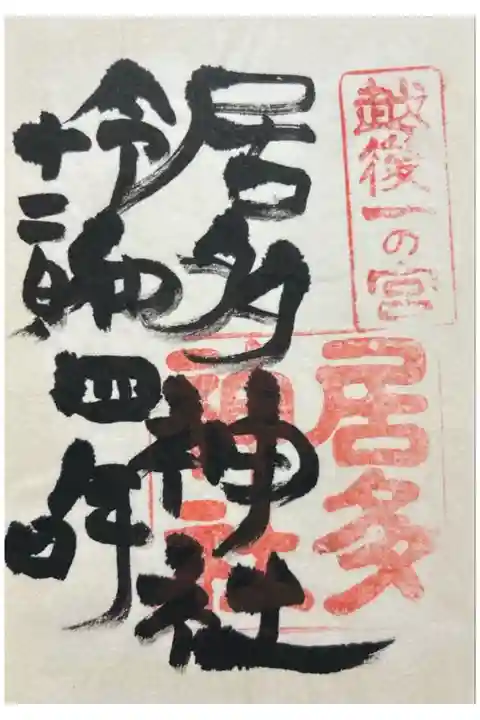 越後一の宮
居多
神社
居多神社
令和四年
十二月